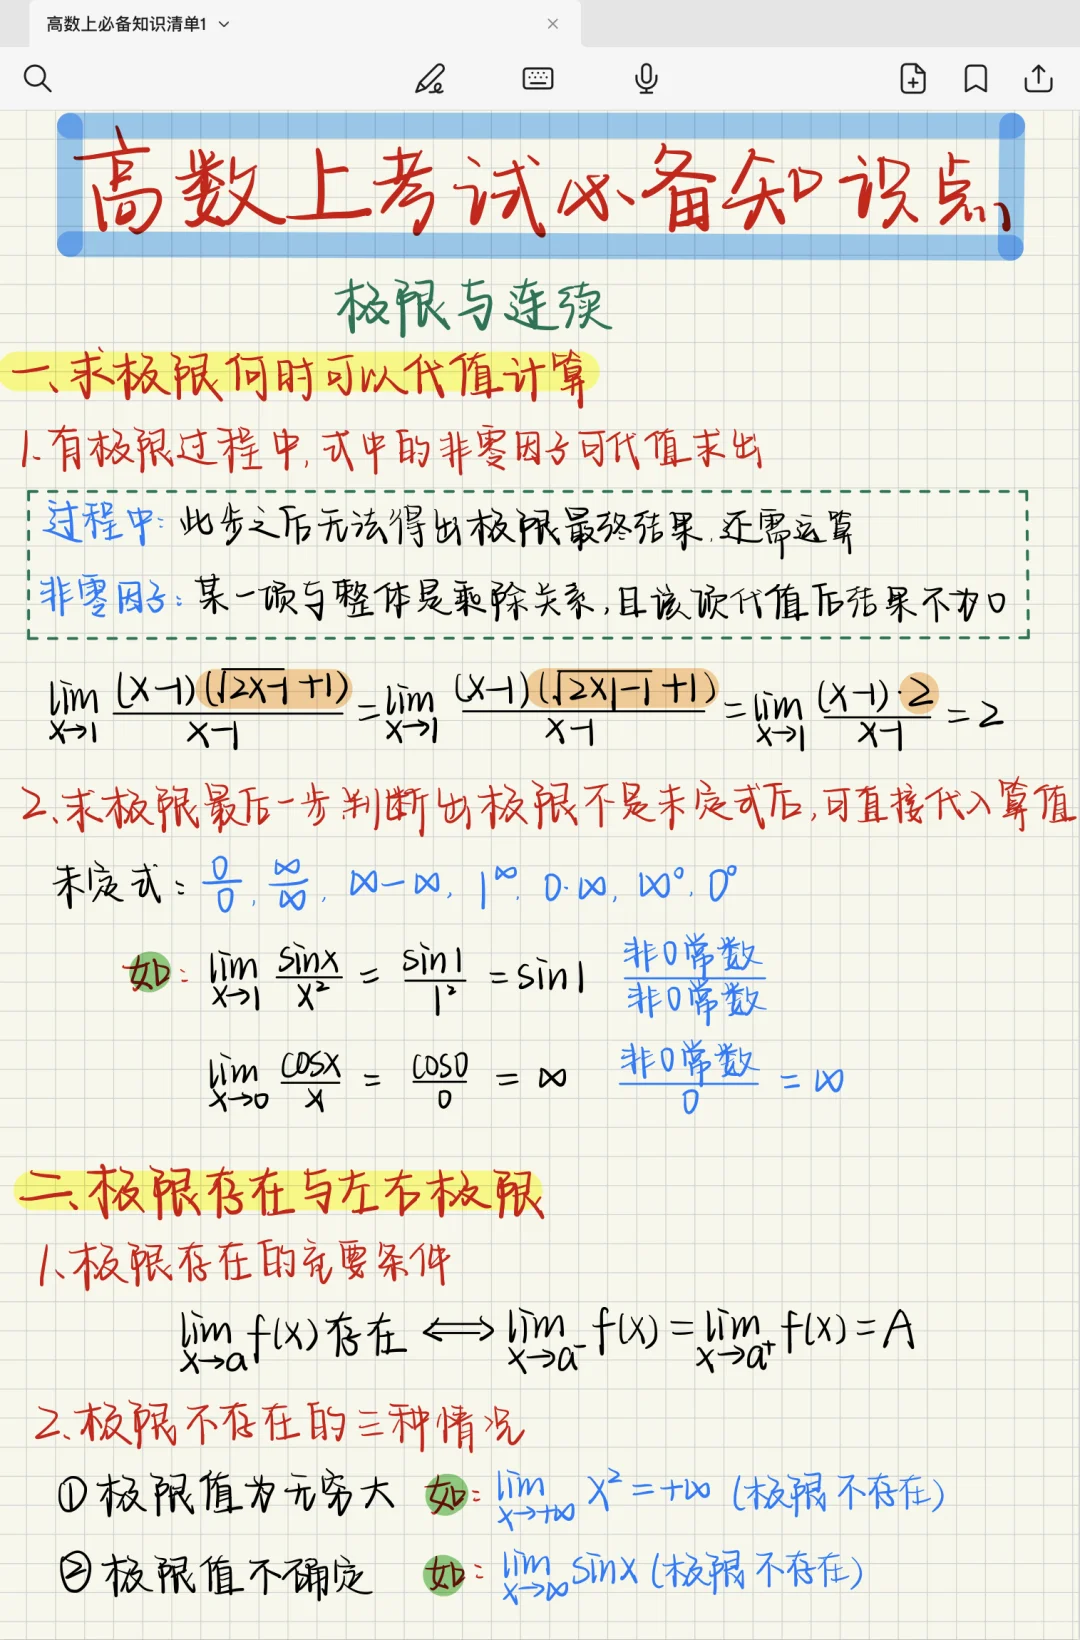 高数上必备知识清单1
高数上考试必备知识点
极限与连续
一、求极限何时可以代值计算
1.有极限过程中,式中的非零因子可代值求出
过程中:此步之后无法得出极限最终结果,还需运算
非零因子:某一项与整体是乘除关系,且该项代值后结果不为0
lim x→1 (x-1)(√2x-1 +1)/(x-1) = lim x→1 (x-1)(√2×1-1 +1)/(x-1) = lim x→1 (x-1)·2/(x-1) = 2
2、求极限最后一步判断出极限不是未定式后,可直接代入算值
未定式: 0/0, ∞/∞, ∞-∞, 1^∞, 0·∞, ∞⁰, 0⁰
如: lim x→1 sinx/x² = sin1/1² = sin1 非0常数/非0常数
lim x→0 cosx/x = cos0/0 = ∞ 非0常数/0 = ∞
二、极限存在与左右极限
1、极限存在的充要条件
lim x→a f(x)存在 ⟺ lim x→a⁻ f(x) = lim x→a⁺ f(x) = A
2、极限不存在的三种情况
①极限值为无穷大 如: lim x→+∞ x² = +∞ (极限不存在)
②极限值不确定 如: lim x→∞ sinx (极限不存在)